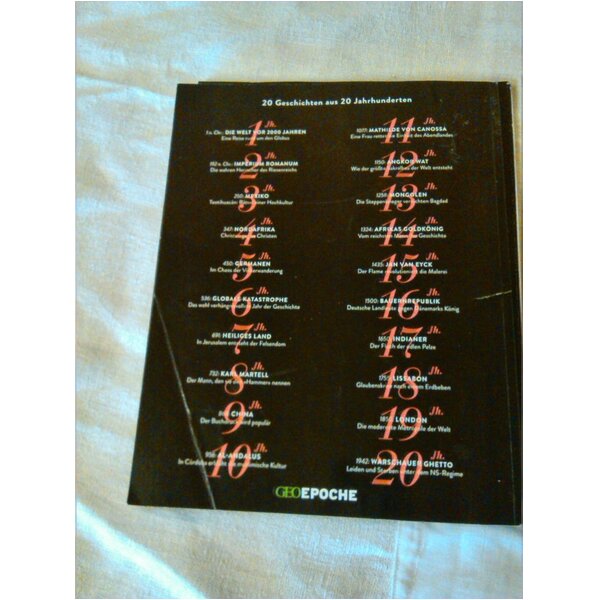 20 Geschichten aus 20 Jahrhunderten
1 Jh.
1 n. Chr.: DIE WELT VOR 2000 JAHREN
Eine Reise rund um den Globus
2 Jh.
192 n. Chr.: IMPERIUM ROMANUM
Die wahren Herrscher des Riesenreichs
3 Jh.
250: MEXIKO
Teotihuacán: Rätsel einer Hochkultur
4 Jh.
347: NORDAFRIKA
Christen gegen Christen
5 Jh.
450: GERMANEN
Im Chaos der Völkerwanderung
6 Jh.
536: GLOBALE KATASTROPHE
Das wohl verhängnisvollste Jahr der Geschichte
7 Jh.
691: HEILIGES LAND
In Jerusalem entsteht der Felsendom
8 Jh.
732: KARL MARTELL
Der Mann, den sie den »Hammer« nennen
9 Jh.
CHINA
Der Buchdruck wird populär
10 Jh.
936: AL-ANDALUS
In Córdoba erblüht die islamische Kultur
11 Jh.
1077: MATHILDE VON CANOSSA
Eine Frau rettet die Einheit des Abendlandes
12 Jh.
1150: ANGKOR WAT
Wie der größte Sakralbau der Welt entsteht
13 Jh.
1258: MONGOLEN
Die Steppenkrieger vernichten Bagdad
14 Jh.
1324: AFRIKAS GOLDKÖNIG
Vom reichsten Mann der Geschichte
15 Jh.
1435: JAN VAN EYCK
Der Flame revolutioniert die Malerei
16 Jh.
1500: BAUERNREPUBLIK
Deutsche Landleute gegen Dänemarks König
17 Jh.
1650: INDIANER
Der Fluch der edlen Pelze
18 Jh.
1755: LISSABON
Glaubenskrise nach einem Erdbeben
19 Jh.
1850: LONDON
Die modernste Metropole der Welt
20 Jh.
1942: WARSCHAUER GHETTO
Leiden und Sterben unter dem NS-Regime
GEO EPOCHE